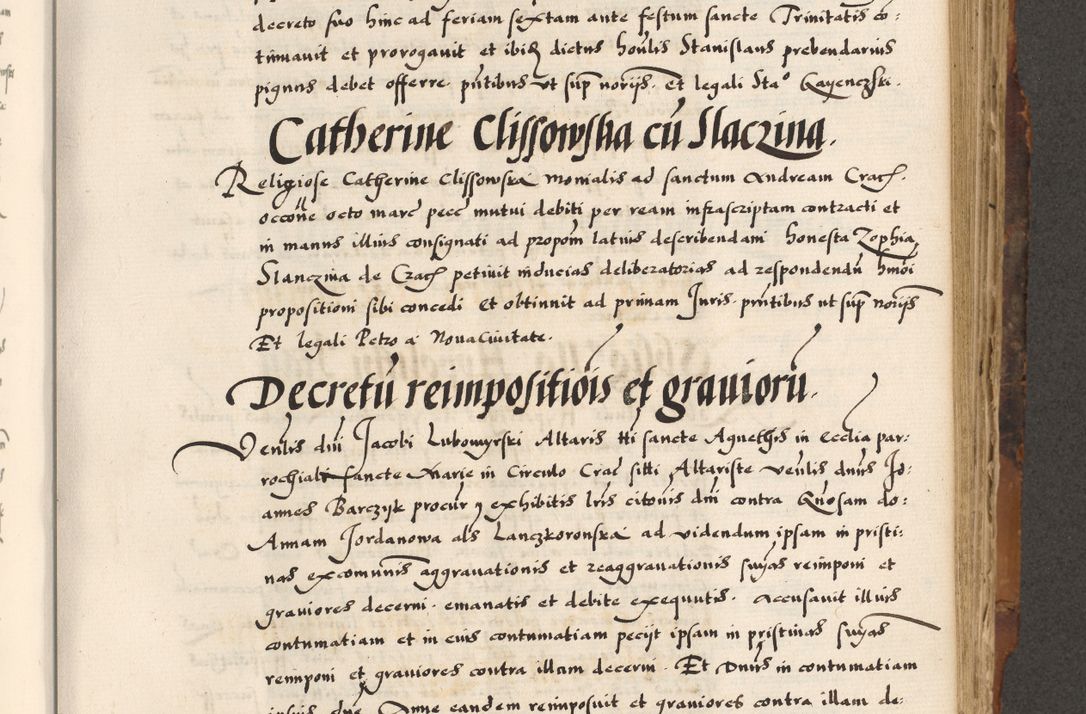 decreto suo hinc ad feriam sextam ante festum sancte Trinitatis co:
tinuavit et prorogavit et ibiđ dictus hoñlis Stanislaus prebendarius
pignus debet offerre pñtibus ut sup̃ norijs. et legali Sta° Kayenczski.
Catherine Clissowska cũ Slaczina.
Religiose Catherine Clissowska monialis ad sanctum Andream Crac̃.
occoñe octo marc̃ pecc̃ mutui debiti per ream infrascriptam contracti et
in manus illius consignati ad propom̃ latius describendam honesta Zophia
Slanczina de Crac̃ petivit inducias deliberatorias ad respondendũ hm̃oi
propositioni sibi concedi et obtinuit ad primam Juris. pñtibus ut sup̃ norijs
Et legali Petro a Nova Civitate.
Decretũ reimpositiõis et graviorũ.
Veñlis dñi Jacobi Lubomyrski Altaris tti sancte Agnethis in Ecclia par:
rochiali sancte Marie in Circulo Crac̃ siti Altariste veñlis dñus Jo:
annes Barczyk procur̃ exhibitis lr̃is citoñis dñi contra Gñosam do:
Annam Jordanowa als Lanczkoronska ad videndum ipsam in pristi:
nas excomuñis aggravationis et reaggravationis snỹas reimponi et
graviores decerni. emanatis et debite exequutis. Accusavit illius
contumatiam et in eius contumatiam pecijt ipsam in pristinas snỹas
reimponi et graviores contra illam decerni. Et Dñus in contumatiam
ipsius dñe Anne eandem reimposuit et graviores contra illam de: